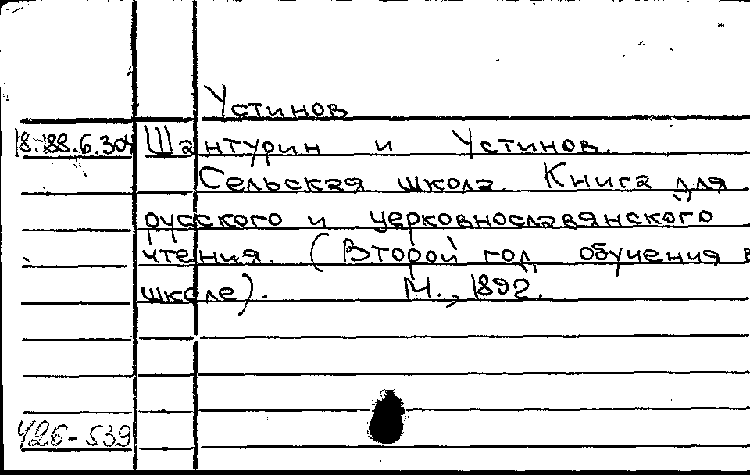 Устинов
18.188.6.304 Шантурин и Устинов.
Сельская школа. Книга для
русского и церковнославянского
чтения. (Второй год обучения в
школе). М., 1892.
426-539